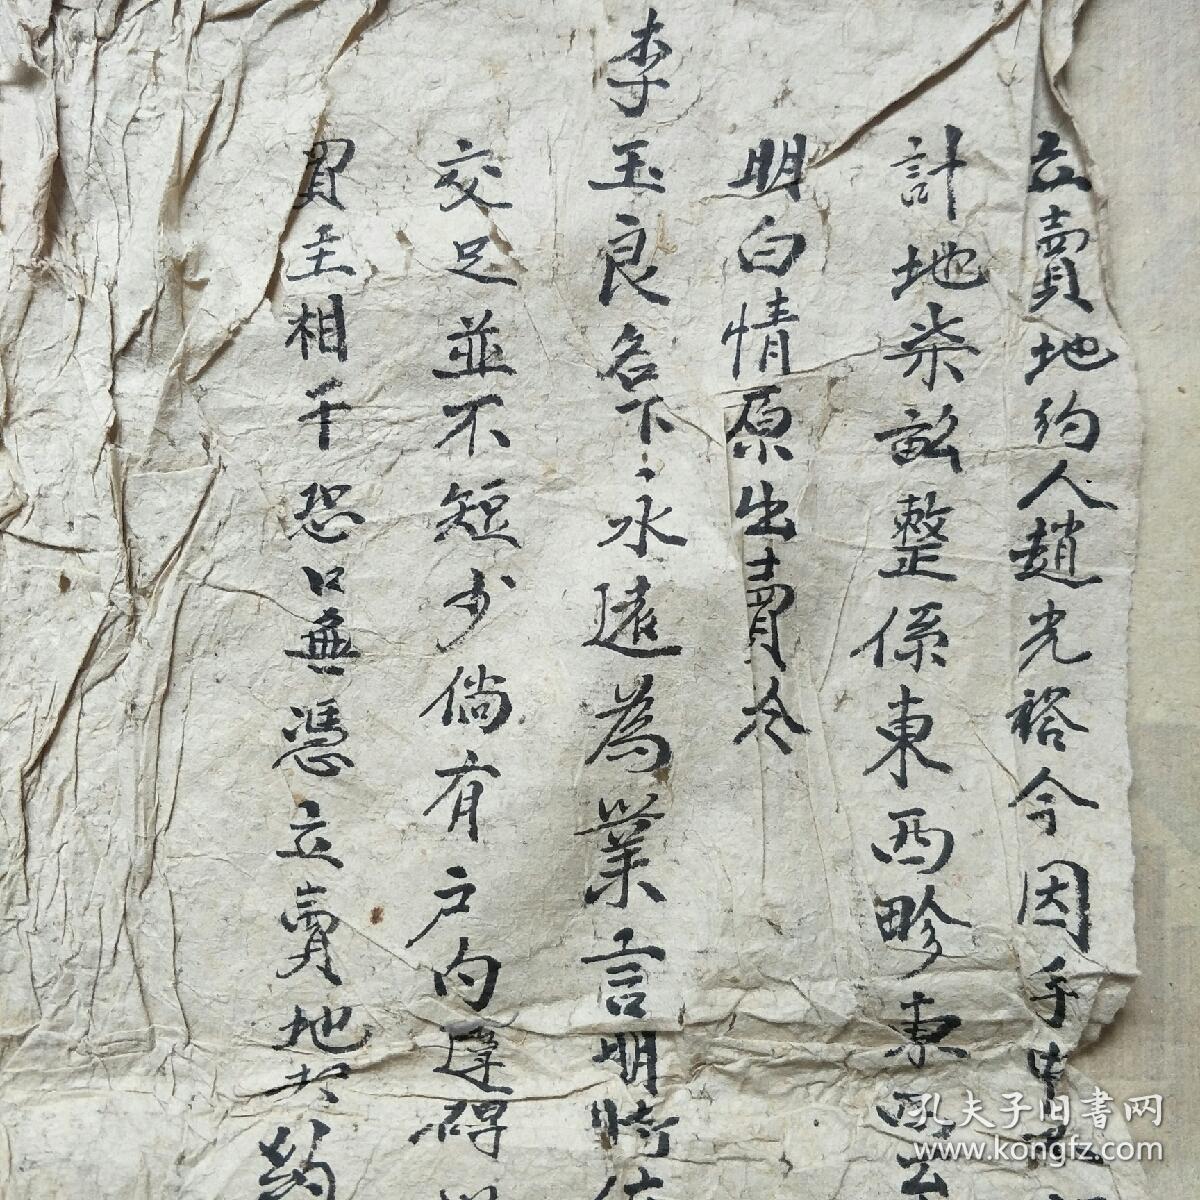 立賣地約人趙光裕今因手中
計地柒畝整係東西畛東西
明白情原出賣於
李玉良名下永遠為業言明時
交足並不短少倘有户內違碍
買主相干恐口無憑立賣地 約
孔夫子旧書网
www.kongfz.com